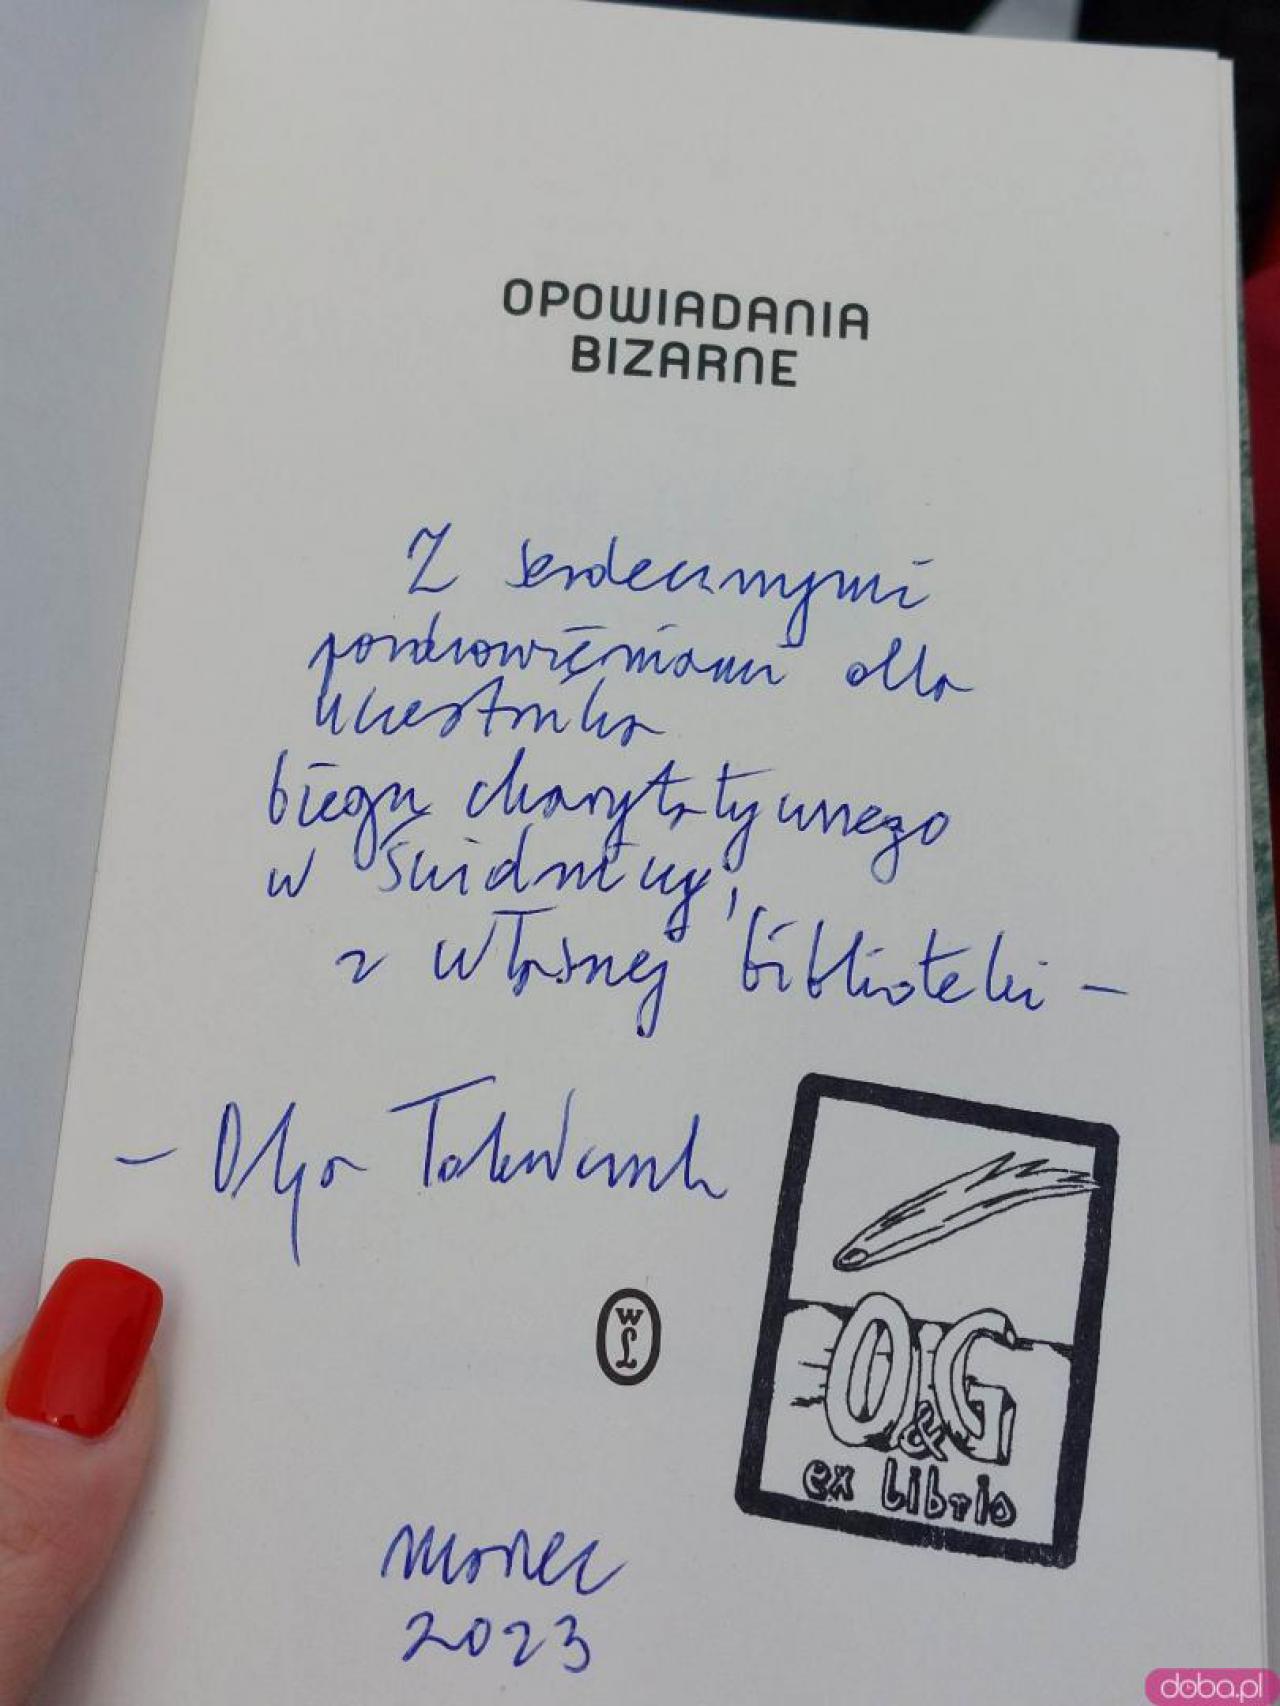 OPOWIADANIA
BIZARNE
Z serdecznymi
pozdrowieniami dla
uczestnika
biegu charytatywnego
w Świdnicy,
z własnej biblioteki –
– Olga Tokarczuk
W
L
O&G
ex libris
marzec
2023
doba.pl